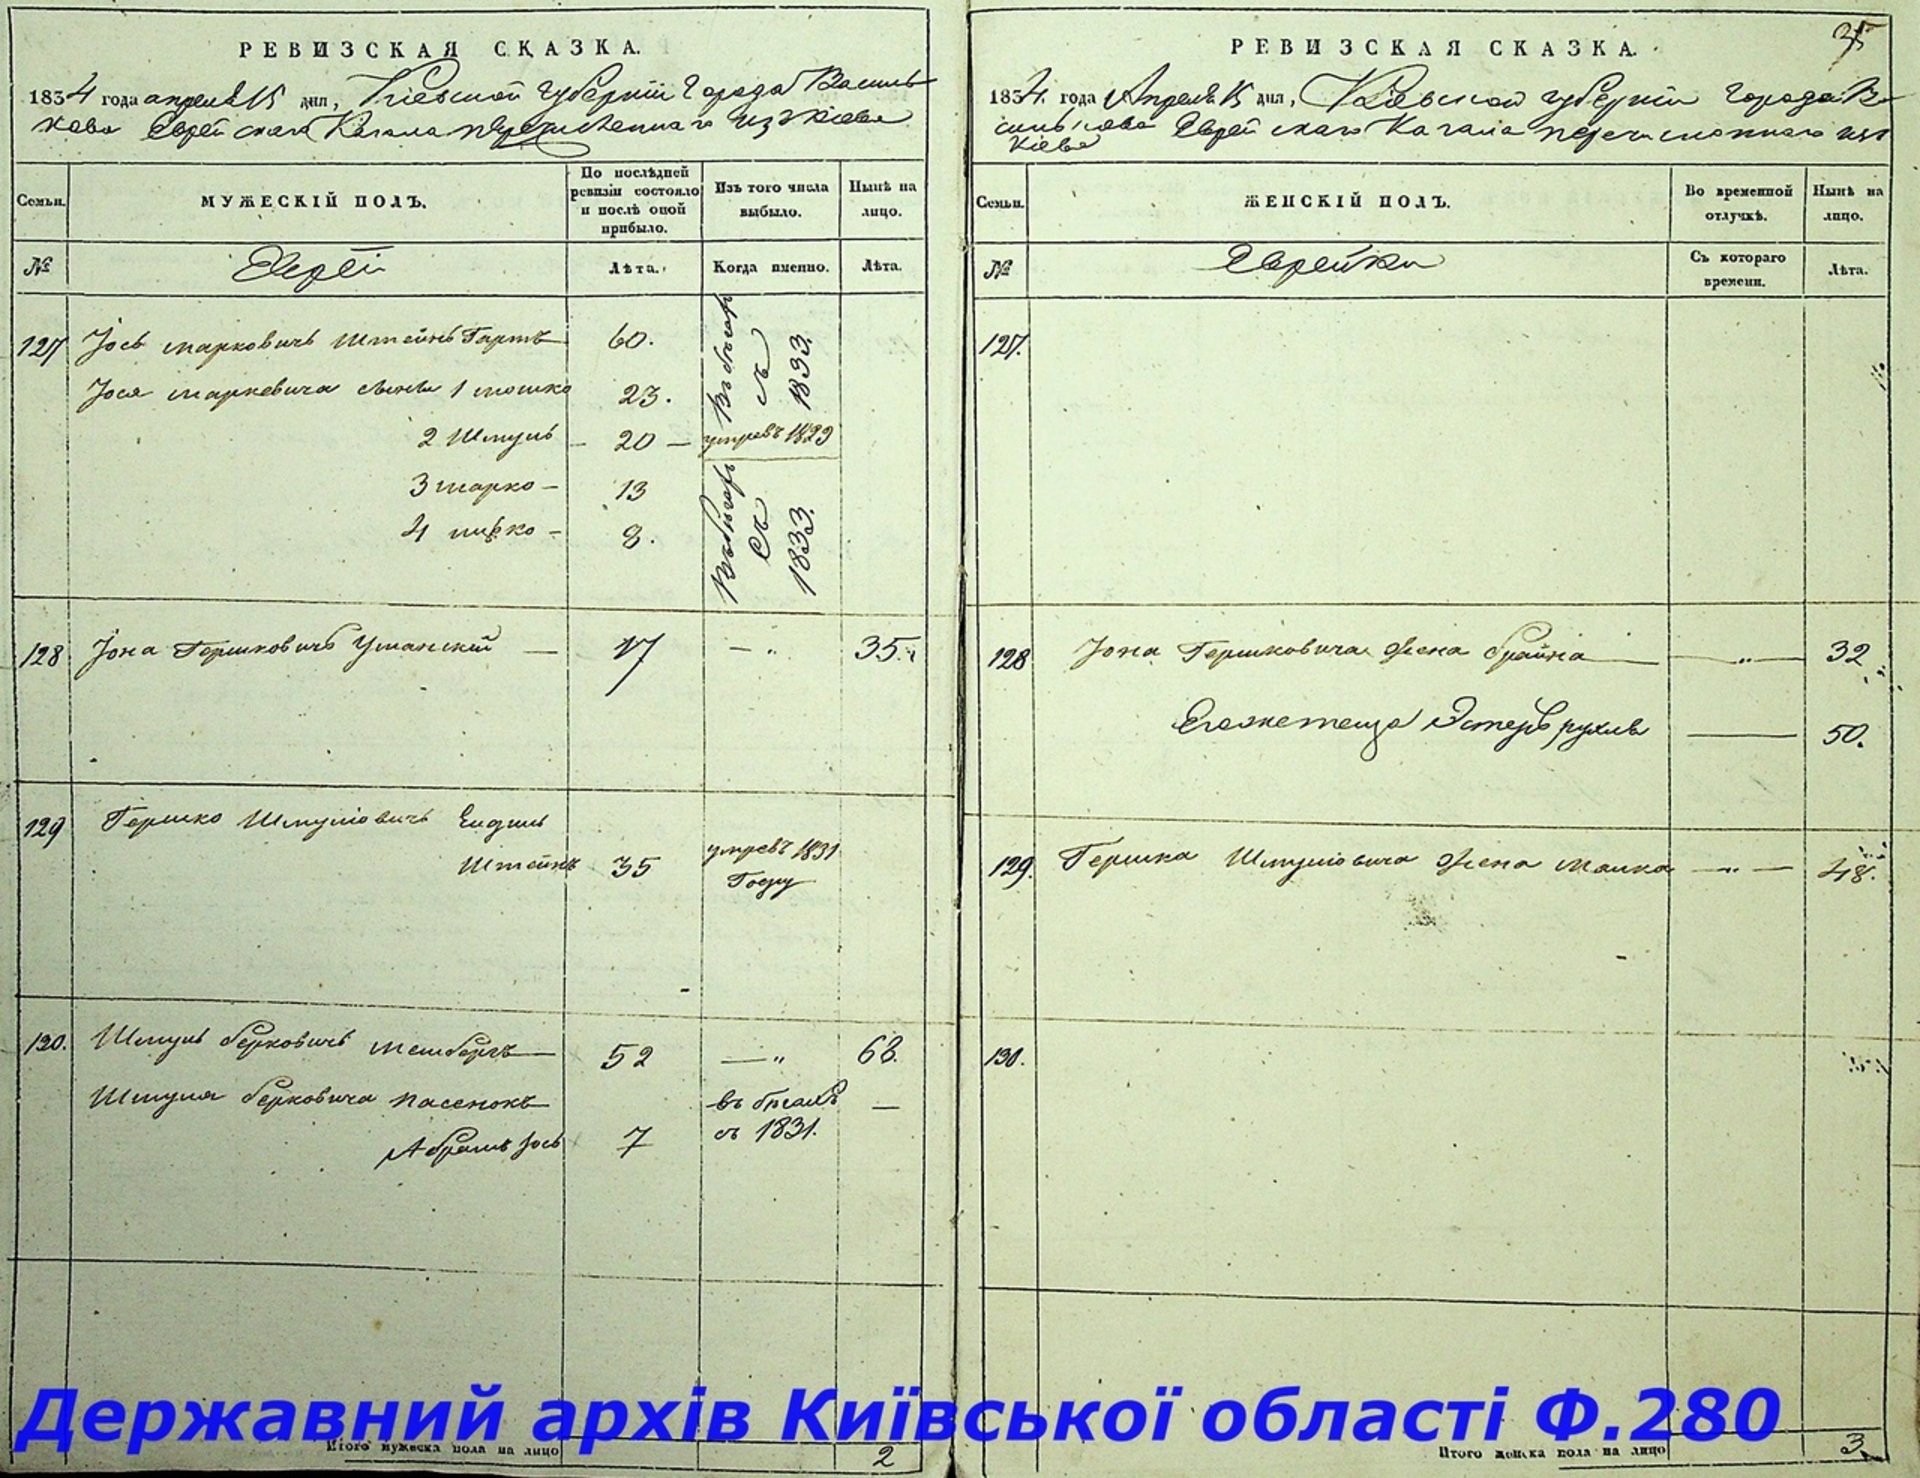 РЕВИЗСКАЯ СКАЗКА.
1834 года апреля 15 дня, Кіевской губерніи Города Василь
кова Еврейскаго Кагала перечисленнаго изъ Кіева
Семьи.
МУЖЕСКІЙ ПОЛЪ.
По послѣдней ревизіи состояло и послѣ оной прибыло.
Изъ того числа выбыло.
Нынѣ на лицо.
№
Евреи
Лѣта.
Когда именно.
Лѣта.
127 Іось Марковичъ Штейнъ Гартъ 60. Въ бѣгахъ съ 1833.
Іося Марковича сынъ 1 Мошко 23.
2 Шмуль 20 умре въ 1829
3 Марко 13 Въ бѣгахъ съ 1833.
4 8.
128 Іона Гершковичъ Уманскій 17 — „ 35.
129 Гершко Шмулiовичъ
Штейнъ 35 умре въ 1831
Году
130. Шмуль Берковичъ 52 — „ 68.
Шмуля Берковича пасенокъ въ бѣгахъ —
Абрамъ Іось 7 съ 1831.
Итого мужеска пола на лицо 2
35
РЕВИЗСКАЯ СКАЗКА.
1834. года Апреля 15 дня, Кіевской губерніи Города Ва
силькова Еврейскаго Кагала перечисленнаго изъ
Кіева
Семьи.
ЖЕНСКІЙ ПОЛЪ.
Во временной отлучкѣ.
Нынѣ на лицо.
№
Еврейки
Съ котораго времени.
Лѣта.
127.
128 Іона Гершковича жена Брайна — „ — 32
Его же теща Эстеръ Рухля — 50.
129. Гершка Шмулiовича жена Малка — „ — 48.
130.
Итого женска пола на лицо 3
Державний архів Київської області Ф.280